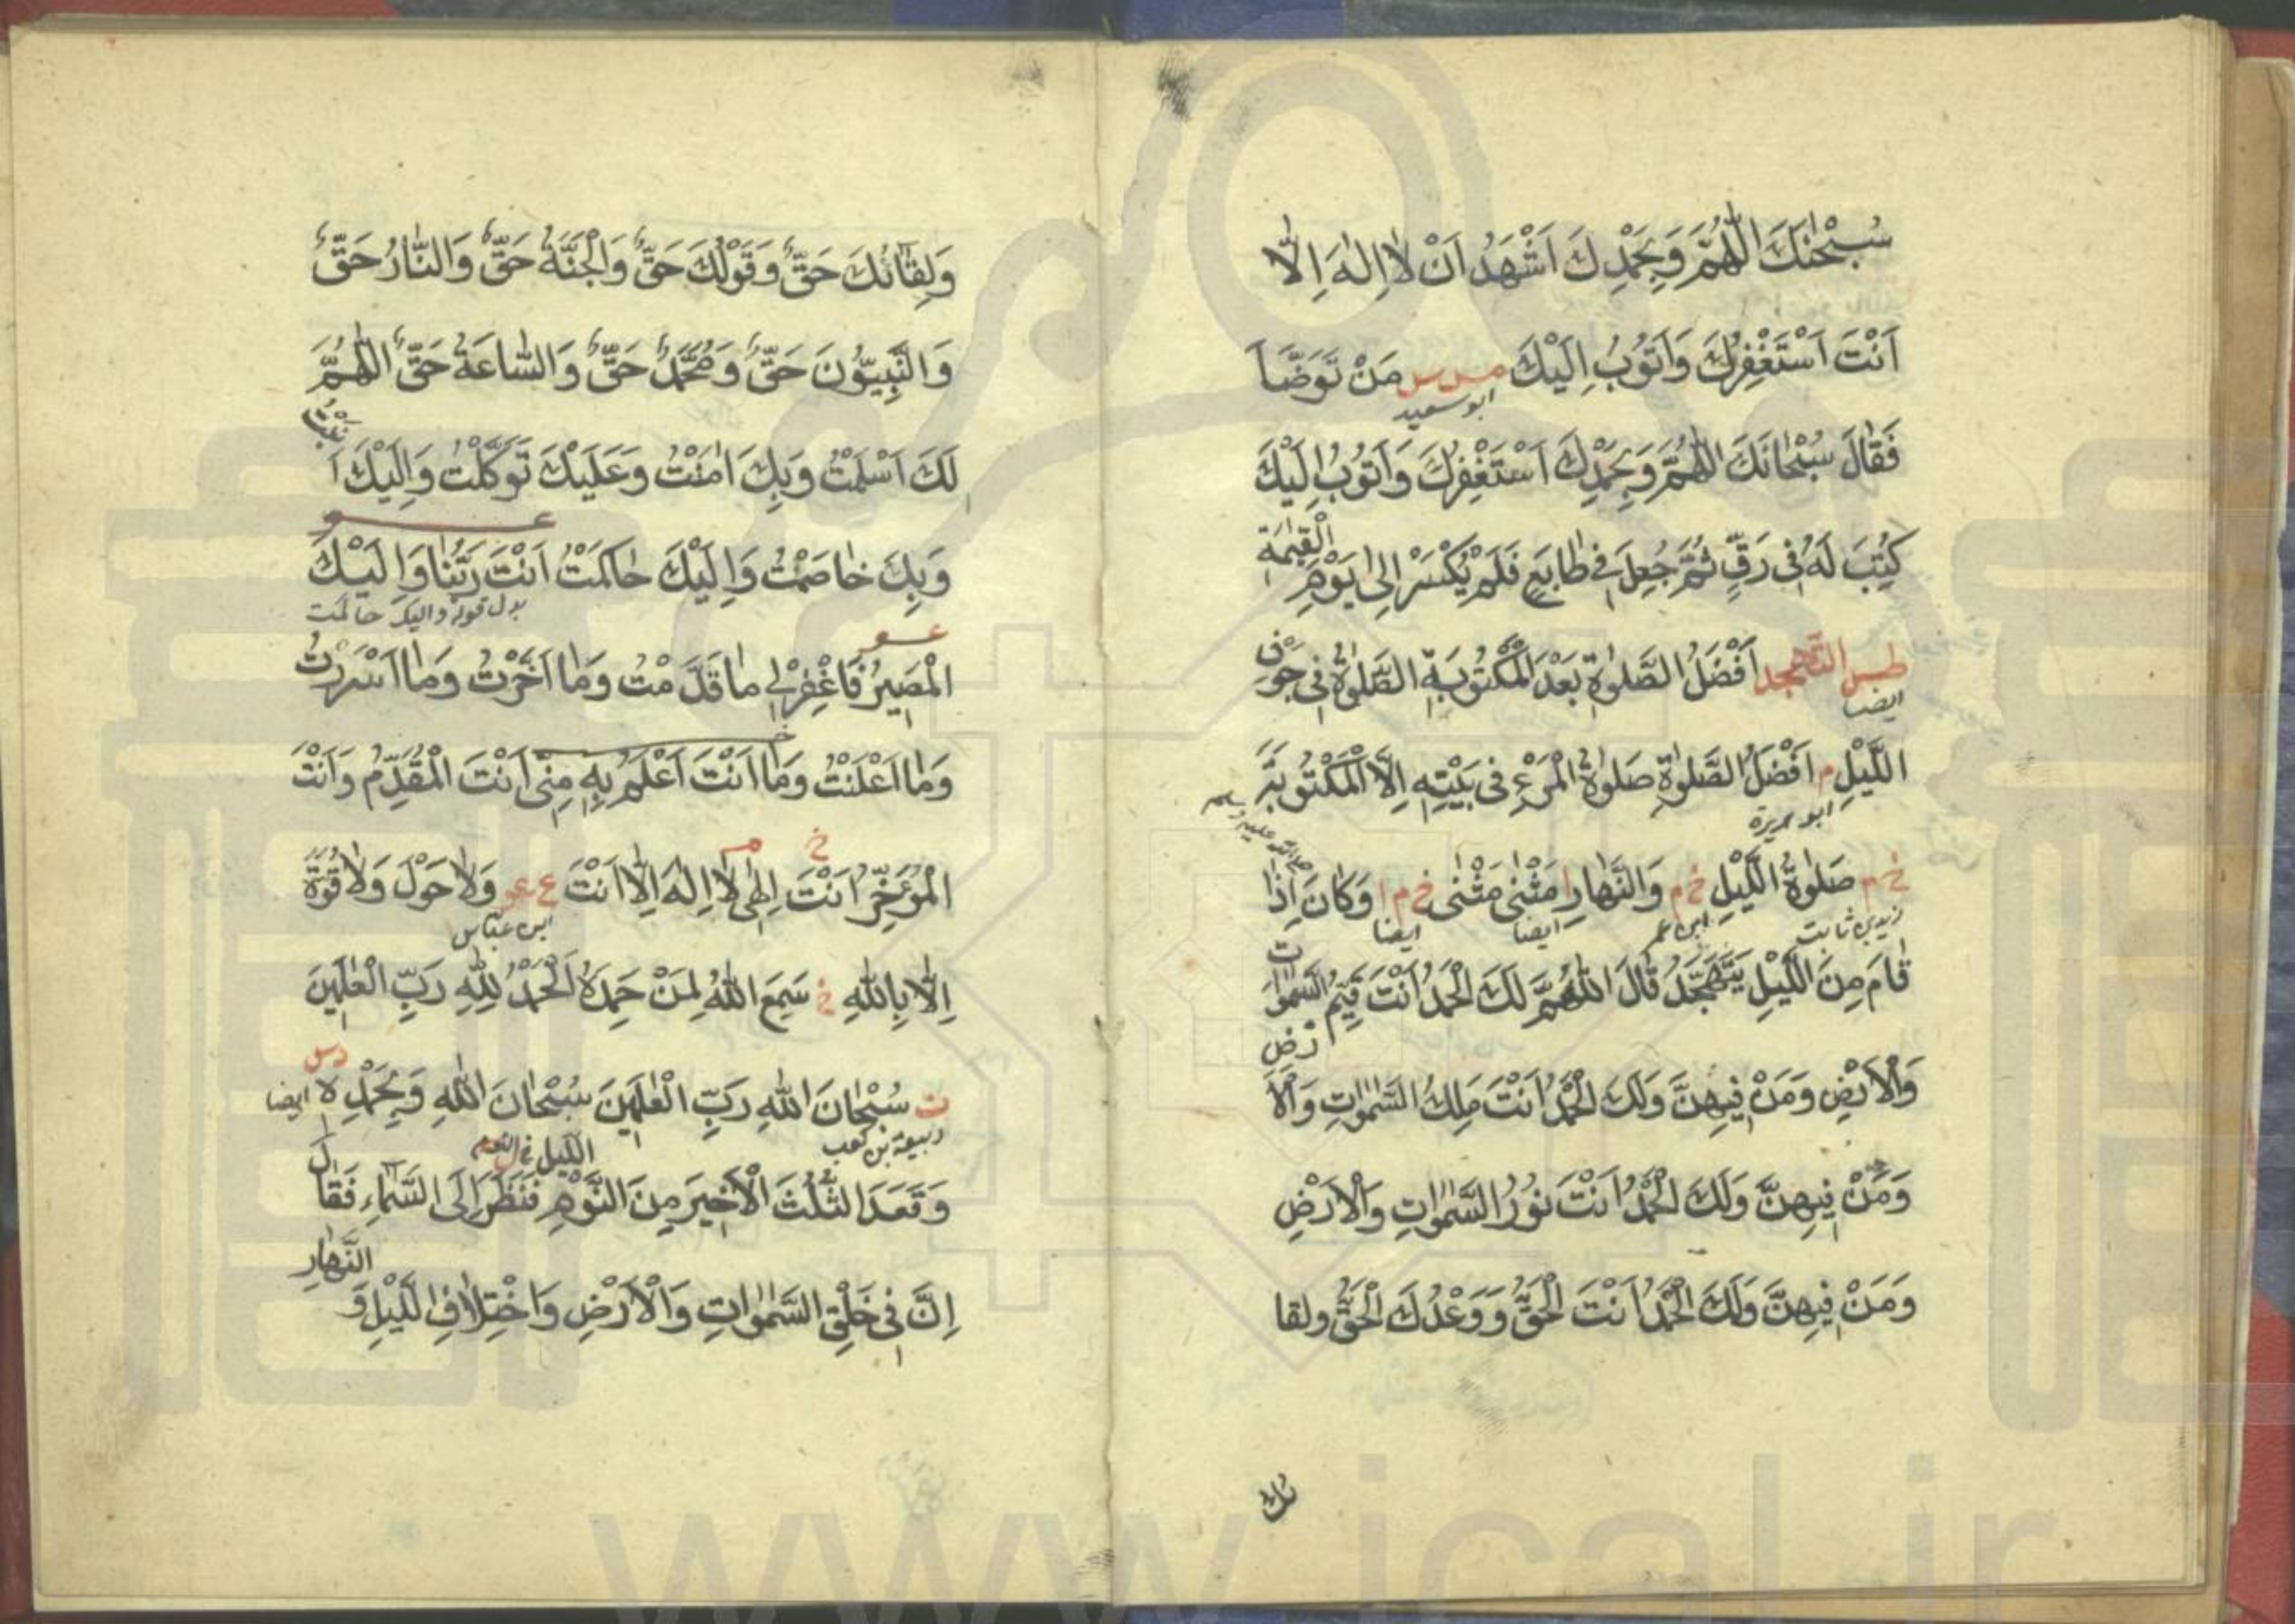 سُبْحٰنَكَ اللّٰهُمَّ وَبِحَمْدِكَ اَشْهَدُ اَنْ لَا اِلٰهَ اِلَّا
اَنْتَ اَسْتَغْفِرُكَ وَاَتُوْبُ اِلَيْكَ مس س مَنْ تَوَضَّأَ
ابو سعيد
فَقَالَ سُبْحَانَكَ اللّٰهُمَّ وَبِحَمْدِكَ اَسْتَغْفِرُكَ وَاَتُوْبُ اِلَيْكَ
كُتِبَ لَهُ فِي رَقٍّ ثُمَّ جُعِلَ فِي طَابَعٍ فَلَمْ يُكْسَرْ اِلٰى يَوْمِ الْقِيٰمَةِ
طس التهجد اَفْضَلُ الصَّلٰوةِ بَعْدَ الْمَكْتُوْبَةِ الصَّلٰوةُ فِي جَوْفِ
ايضا
اللَّيْلِ م اَفْضَلُ الصَّلٰوةِ صَلٰوةُ الْمَرْءِ فِي بَيْتِهِ اِلَّا الْمَكْتُوْبَةَ
ابو هريرة
خ م صَلٰوةُ اللَّيْلِ خ م وَالنَّهَارِ ا مَثْنٰى مَثْنٰى خ م ا وَكَانَ اِذَا
زيد بن ثابت ابن عمر ايضا ايضا
قَامَ مِنَ اللَّيْلِ يَتَهَجَّدُ قَالَ اللّٰهُمَّ لَكَ الْحَمْدُ اَنْتَ قَيِّمُ السَّمٰوَاتِ
وَالْاَرْضِ وَمَنْ فِيْهِنَّ وَلَكَ الْحَمْدُ اَنْتَ مَلِكُ السَّمٰوَاتِ وَالْاَرْضِ
وَمَنْ فِيْهِنَّ وَلَكَ الْحَمْدُ اَنْتَ نُوْرُ السَّمٰوَاتِ وَالْاَرْضِ
وَمَنْ فِيْهِنَّ وَلَكَ الْحَمْدُ اَنْتَ الْحَقُّ وَوَعْدُكَ الْحَقُّ ولقا
ئك
وَلِقَائُكَ حَقٌّ وَقَوْلُكَ حَقٌّ وَالْجَنَّةُ حَقٌّ وَالنَّارُ حَقٌّ
وَالنَّبِيُّوْنَ حَقٌّ وَمُحَمَّدٌ حَقٌّ وَالسَّاعَةُ حَقٌّ اللّٰهُمَّ
لَكَ اَسْلَمْتُ وَبِكَ اٰمَنْتُ وَعَلَيْكَ تَوَكَّلْتُ وَاِلَيْكَ اَنَبْتُ
عو
وَبِكَ خَاصَمْتُ وَاِلَيْكَ حَاكَمْتُ اَنْتَ رَبُّنَا وَاِلَيْكَ
بدل قوله واليك حاكمت
عو
الْمَصِيْرُ فَاغْفِرْ لِي مَا قَدَّمْتُ وَمَا اَخَّرْتُ وَمَا اَسْرَرْتُ
خ
وَمَا اَعْلَنْتُ وَمَا اَنْتَ اَعْلَمُ بِهِ مِنِّي اَنْتَ الْمُقَدِّمُ وَاَنْتَ
خ م
الْمُؤَخِّرُ اَنْتَ اِلٰهِي لَا اِلٰهَ اِلَّا اَنْتَ ع عو وَلَا حَوْلَ وَلَا قُوَّةَ
ابن عباس
اِلَّا بِاللّٰهِ خ سَمِعَ اللّٰهُ لِمَنْ حَمِدَهُ اَلْحَمْدُ لِلّٰهِ رَبِّ الْعٰلَمِيْنَ
ت سُبْحَانَ اللّٰهِ رَبِّ الْعٰلَمِيْنَ سُبْحَانَ اللّٰهِ وَبِحَمْدِهِ دس ايضا
ربيعة بن كعب
وَقَعَدَ الثُّلُثَ الْاَخِيْرَ مِنَ اللَّيْلِ النَّوْمِ فَنَظَرَ اِلَى السَّمَاءِ فَقَالَ
اِنَّ فِي خَلْقِ السَّمٰوَاتِ وَالْاَرْضِ وَاخْتِلَافِ اللَّيْلِ وَالنَّهَارِ
www.ical.ir